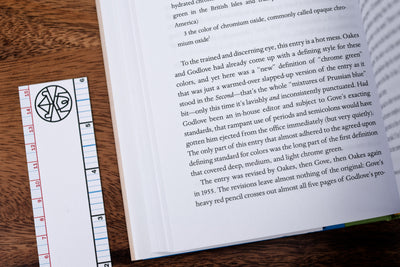 hydrated chrom
green in the British Isles and tra
America)
3 the color of chromium oxide, commonly called opaque chro-
mium oxide
To the trained and discerning eye, this entry is a hot mess. Oakes
and Godlove had already come up with a defining style for these
colors, and yet here was a "new" definition of "chrome green"
that was just a warmed-over slapped-up version of the entry as it
stood in the Second—that's the whole "mixtures of Prussian blue"
bit—only this time it's lavishly and inconsistently punctuated. Had
Godlove been an in-house editor and subject to Gove's exacting
standards, that rampant use of periods and semicolons would have
gotten him ejected from the office immediately (but very quietly).
The only part of this entry that almost adhered to the agreed upon
defining standard for colors was the long part of the first definition
that covered deep, medium, and light chrome green.
The entry was revised by Oakes, then Gove, then Oakes again
in 1955. The revisions leave almost nothing of the original: Gove's
heavy red pencil crosses out almost all five pages of Godlove's pro-
6
5
4
3
2